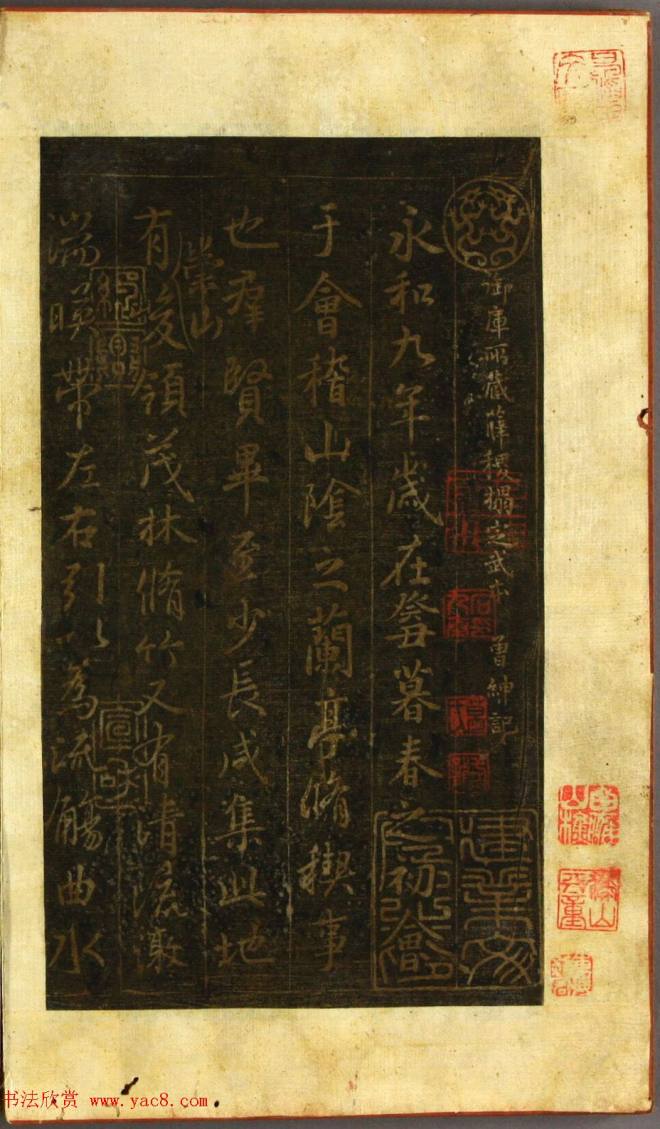 御庫所藏薛稷搨定武本 曾紳記
永和九年歲在癸丑暮春之初會
于會稽山陰之蘭亭脩稧事
也羣賢畢至少長咸集此地
崇山
有峻領茂林脩竹又有清流激
湍暎帶左右引以為流觴曲水
紹興
宣和
书法欣赏 www.yac8.com